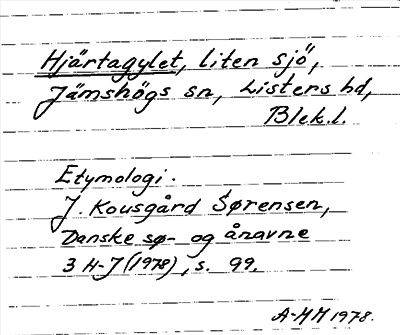 Hjärtagylet, liten sjö,
Jämshögs sn, Listers hd,
Blek.l.
Etymologi.
J. Kousgård Sørensen,
Danske sø- og ånavne
3 H-J (1978), s. 99.
A-MH 1978.